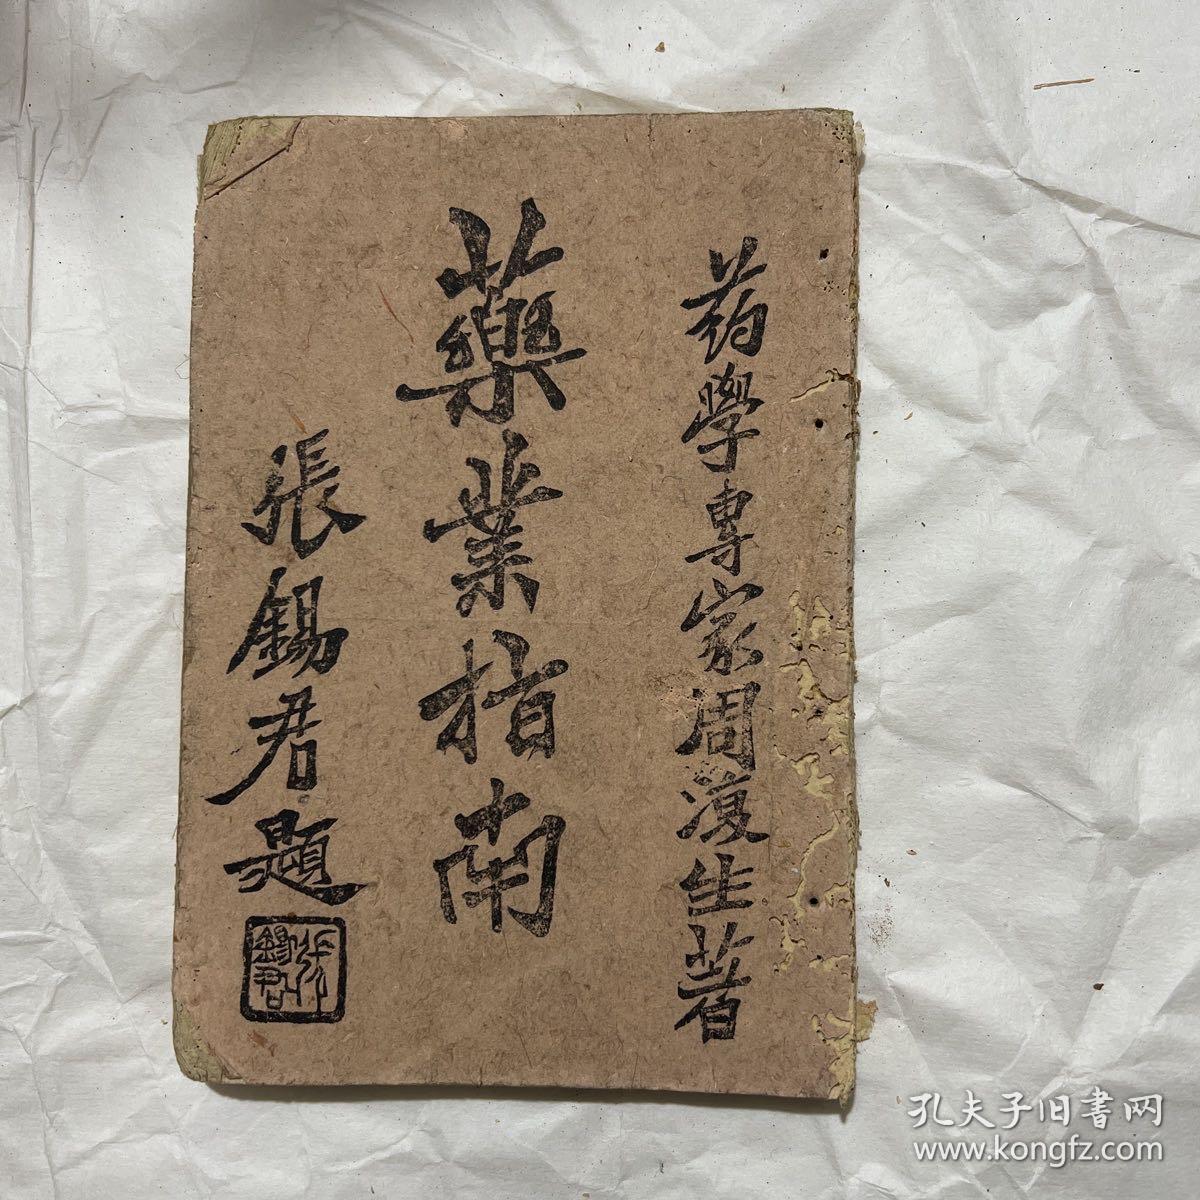 药學專家周復生著
藥業指南
張錫君題
張錫君
孔夫子旧書网
www.kongfz.com